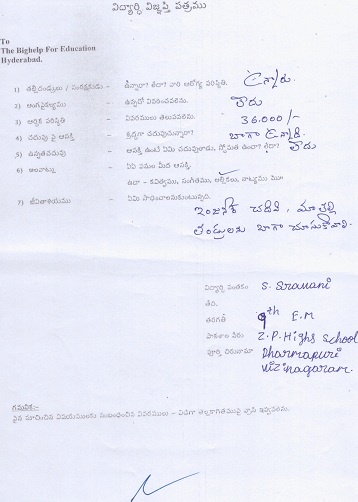 విద్యార్థి విజ్ఞప్తి పత్రము
To
The Bighelp For Education
Hyderabad.
1) తల్లిదండ్రులు / సంరక్షకుడు - ఉన్నారా? లేదా? వారి ఆరోగ్య పరిస్థితి. ఉన్నారు.
2) అంగవైకల్యము - ఉన్నచో వివరించవలెను. లేదు
3) ఆర్థిక పరిస్థితి - వివరములు తెలుపవలెను. 36.000/-
4) చదువు పై ఆసక్తి - శ్రద్ధగా చదువుచున్నారా? బాగా ఉన్నది.
5) ఉన్నతచదువు - ఆసక్తి ఉంటే ఏమి చదువుతారు, స్తోమత ఉందా? లేదా? లేదు
6) అలవాట్లు - ఏఏ పనుల మీద ఆసక్తి.
ఉదా - కవిత్వము, సంగీతము, ఆటలు, నాట్యము మొ
7) జీవితాశయము - ఏమి సాధించాలనుకుంటున్నది.
ఇంజనీర్ చదివి, మా తల్లి
తండ్రులను బాగా చూసుకోవాలి.
విద్యార్థి సంతకం S. Sravani
తేది.
తరగతి 9th E.M
పాఠశాల పేరు Z.P.Highs School
పూర్తి చిరునామా Dharmapuri
Vizinagaram.
గమనిక:-
పైన సూచించిన విషయములకు సంబంధించిన వివరములు - విడిగా తెల్లకాగితముపై వ్రాసి ఇవ్వవలెను.